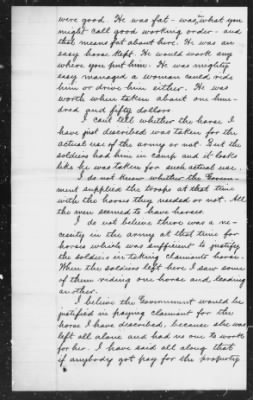 were good. He was fat - was what you
might call good working order - and
that means fat about here. He was an
easy horse kept. He would work any
where you put him. He was mighty
easy managed a woman could ride
him or drive him either. He was
worth when taken about one hun-
dred and fifty dollars
I cant tell whether the horse I
have just described was taken for the
actual use of the army or not. But the
soldiers had him in camp and it looks
like he was taken for such actual use.
I do not know whether the Govern-
ment supplied the troops at that time
with the horses they needed or not. All
the men seemed to have horses.
I do not believe there was a ne-
cessity in the army at that time for
horses which was sufficient to justify
the soldiers in taking claimants horse.
When the soldiers left here I saw some
of them riding one horse and leading
another.
I believe the Government would be
justified in paying claimant for the
horse I have described, because she was
left all alone and had no one to work
for her. I have said all along that
if anybody got pay for the property